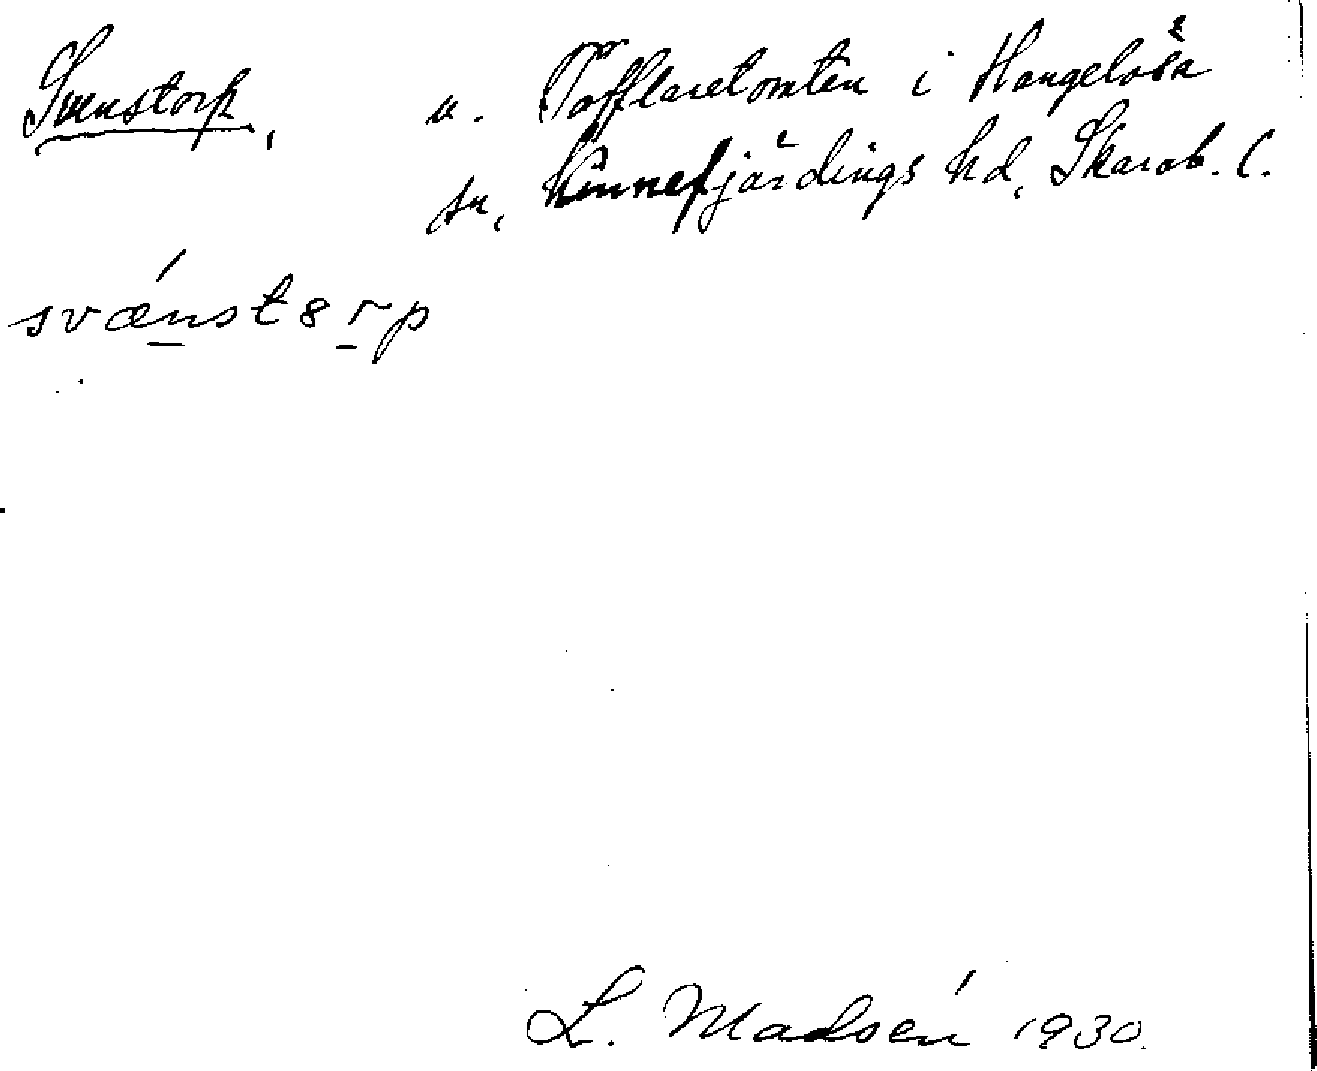 Svenstorp, u. Tofflaretomten i Hangelösa
sn, Kinnefjärdings hd, Skarab. l.
svænst8rp
L. Madsén 1930.